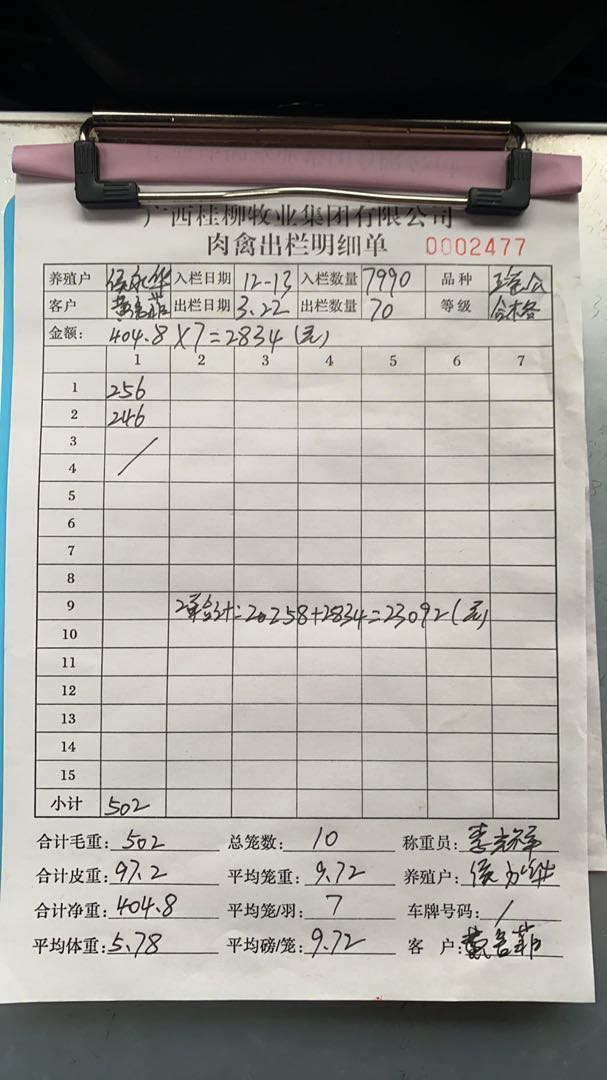 广西桂柳牧业集团有限公司
肉禽出栏明细单 0002477
养殖户 入栏日期 12-13 入栏数量 7990 品种
客户 出栏日期 3.22 出栏数量 70 等级 合格
金额: 404.8×7=2834(元)
1 2 3 4 5 6 7
1 256
2 246
3
4
5
6
7
8
9 2单合计=20258+2834=23092(元)
10
11
12
13
14
15
小计 502
合计毛重: 502 总笼数: 10 称重员:
合计皮重: 97.2 平均笼重: 9.72 养殖户:
合计净重: 404.8 平均笼/羽: 7 车牌号码: /
平均体重: 5.78 平均磅/笼: 9.72 客 户: